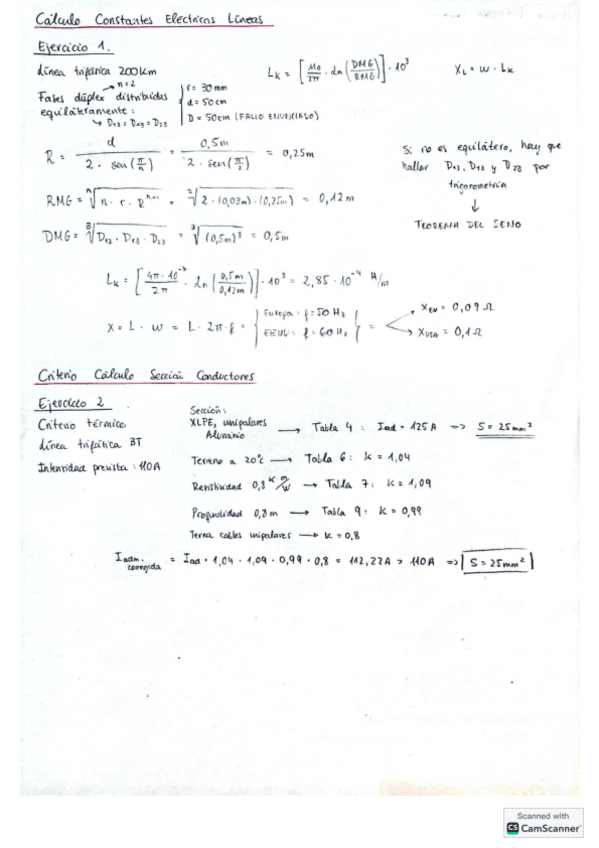 Cálculo Constantes Electricas Líneas
Ejercicio 1.
Línea trifásica 200Km
L_K = [μ0/2π · ln(DMG/RMG)] · 10^3
X_L = w · L_K
n=2
Fases dúplex distribuidas
equiláteramente:
D12 = D13 = D23
r = 30mm
d = 50cm
D = 50cm (FALLO ENUNCIADO)
R = d / 2 · sen(π/n) = 0,5m / 2 · sen(π/2) = 0,25m
Si no es equilátero, hay que
hallar D12, D13 y D23 por
trigonometría
↓
TEOREMA DEL SENO
RMG = ⁿ√n · r · R^n-1 = ²√2 · (0,03m) · (0,25m) = 0,12m
DMG = ³√D12 · D13 · D23 = ³√(0,5m)^3 = 0,5m
L_K = [4π · 10^-7 / 2π · ln(0,5m/0,12m)] · 10^3 = 2,85 · 10^-4 H/m
X = L · w = L · 2π · f = { Europa: f = 50 Hz
EEUU: f = 60 Hz } =
X_EU = 0,09 Ω
X_USA = 0,1 Ω
Criterio Cálculo Sección Conductores
Ejercicio 2
Criterio térmico
Línea trifásica BT
Intensidad prevista: 110A
Sección:
XLPE, unipolares
Aluminio
→ Tabla 4: Iad = 125 A => S = 25mm²
Terreno a 20°C → Tabla 6: K = 1,04
Resistividad 0,8 K·m/W → Tabla 7: K = 1,09
Profundidad 0,8m → Tabla 9: K = 0,99
Terna cables unipolares → K = 0,8
I adm. corregida = Iad · 1,04 · 1,09 · 0,99 · 0,8 = 112,22A > 110A => S = 25mm²
Scanned with
CS CamScanner